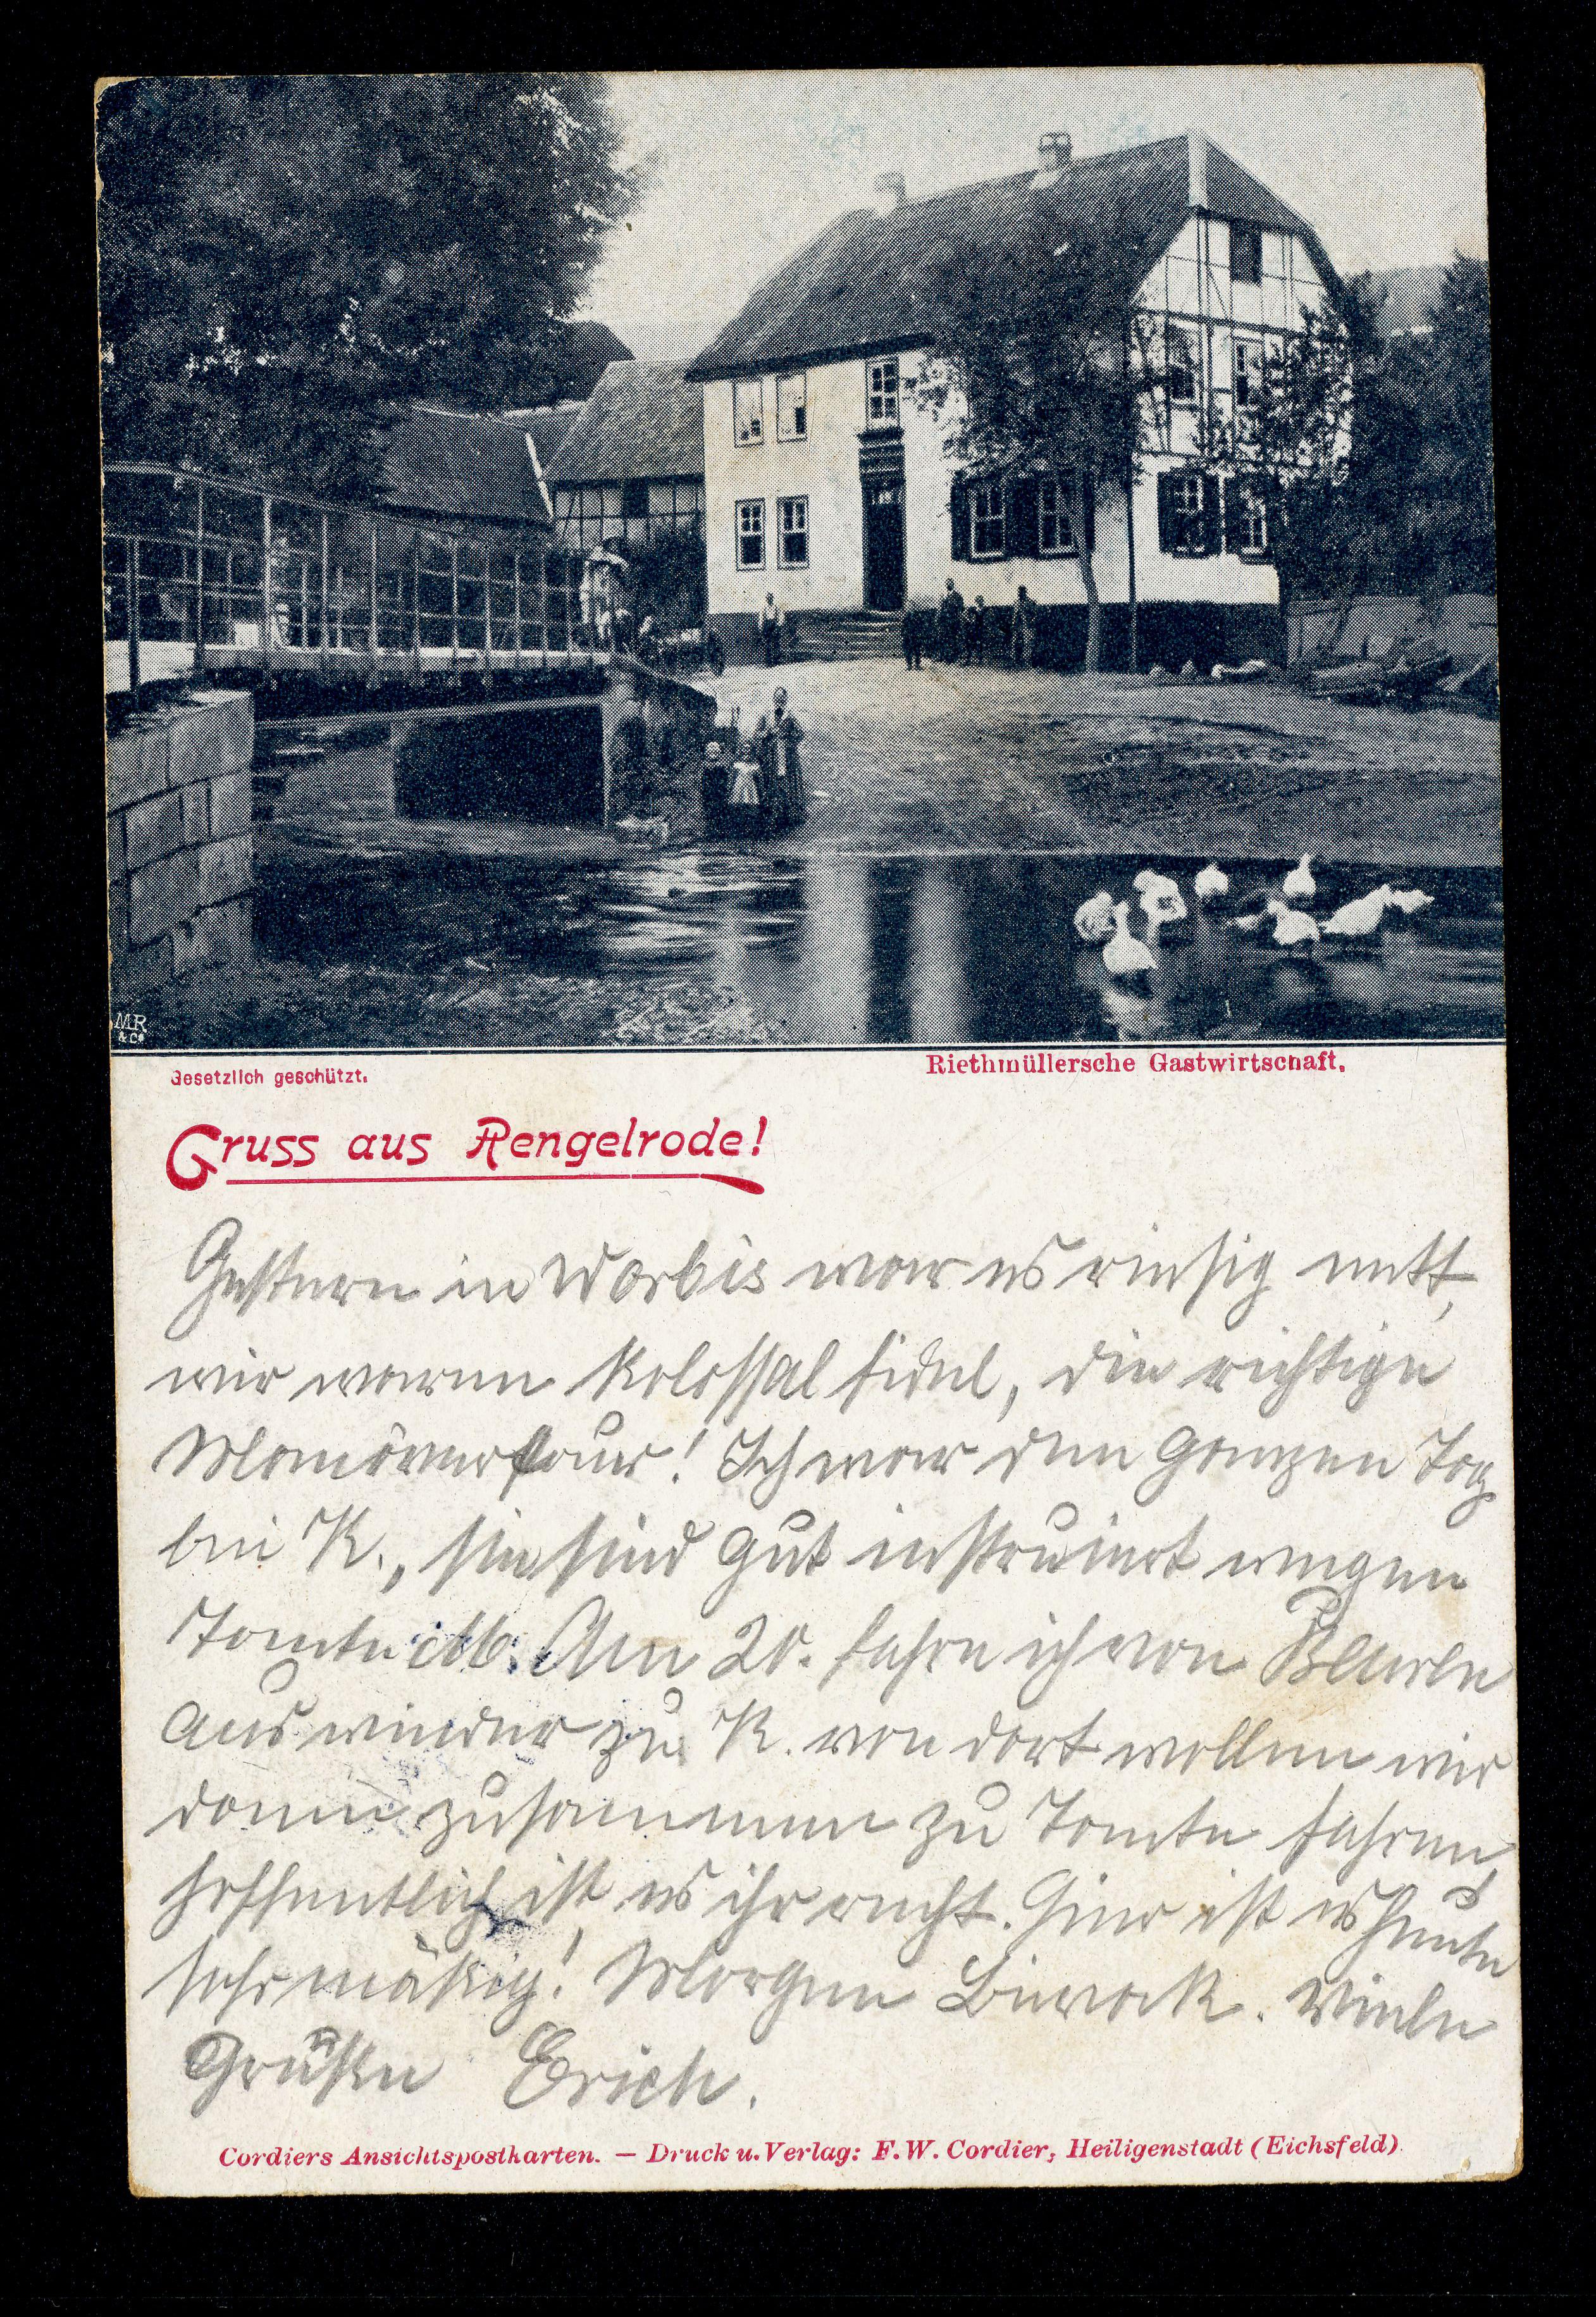 MR
& Co
Gesetzlich geschützt.
Riethmüllersche Gastwirtschaft.
Gruss aus Rengelrode!
Gestern in Worbis war es riesig nett,
wir waren kolossal fidel, die richtige
Manöver! Ich war den ganzen Tag
bei K., sie sind gut instruiert wegen
Tante M. Am 20. fahre ich von
aus wieder zu K. von dort wollen wir
dann zusammen zu Tante fahren,
hoffentlich ist es ihr recht. Hier ist es heute
sehr mäßig! Morgen Biwack. Viele
Grüße Erich.
Cordiers Ansichtspostkarten. — Druck u. Verlag: F. W. Cordier, Heiligenstadt (Eichsfeld).